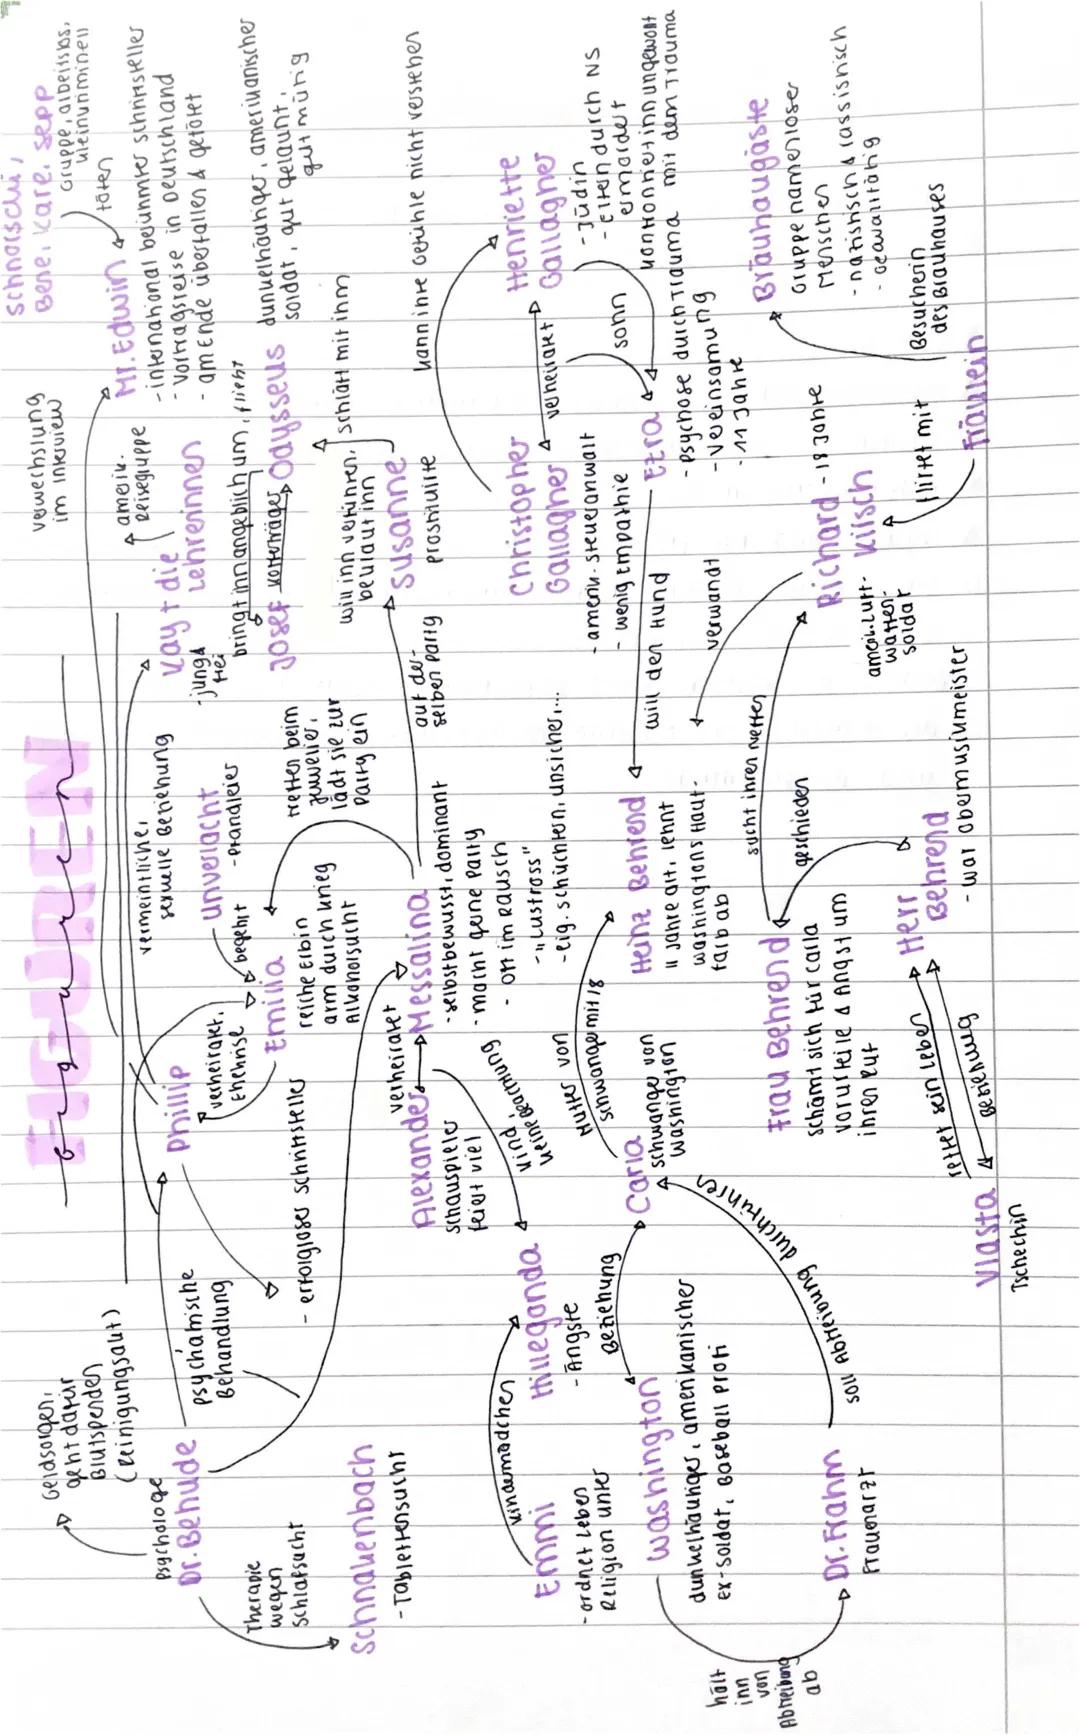 FIGUREN
figuren
Geldsorgen,
geht dafür
Blutspenden
(Reinigungsaut)
Psychologe
Dr. Behude
Therapie
wegen
Schlafsucht
Schnakenbach
- Tablettensucht
psychamische
Behandlung
Phillip
- erfolgloser Schriftsteller
verheiratet,
Ehekrise
Emilia
reiche Erbin
arm durch Krieg
Alkoholsucht
begehrt
Unverlacht
- Prandleier
vermeintliche,
sexuelle Beziehung
Kay + die
Lehrerinnen
- jung &
frei
amerik.
Reisegruppe
Verwechslung
im Interview
Mr. Edwin
- international berühmter Schriftsteller
- Vortragsreise in Deutschland
- am Ende überfallen & getötet
töten
Schnorschi,
Bene, Kare, Sepp
Gruppe, arbeitslos,
kleinkriminell
bringt ihn angeblich um, flieht
Josef
Kofferträger
Odysseus
dunkelhäutiger, amerikanischer
Soldat, gut gelaunt,
gutmütig
will ihn verführen,
beklaut ihn
schläft mit ihm
Susanne
prostituirte
auf der-
selben Party
treffen beim
Juwelier,
lädt sie zur
Party ein
Alexander
Schauspieler
feiert viel
verheiratet
Messalina
- selbstbewusst, dominant
- macht gerne Party
- oft im Rausch
- "Lustross"
- eig. schüchtern, unsicher,...
Kind,
keine Beachtung
Emmi
- ordnet Leben
Religion unter
Kindermädchen
Hillegonda
- Ängste
Christopher
Gallagher
- amerik. Steueranwalt
- wenig Empathie
verheiratet
kann ihre Gefühle nicht verstehen
Henriette
Gallagher
- Jüdin
- Eltern durch NS
ermordet
Sohn
Ezra
- Psychose durch Trauma
- Vereinsamung
- 11 Jahre
Konfrontiert ihn ungewollt
mit dem Trauma
will den Hund
Washington
dunkelhäutiger, amerikanischer
ex-soldat, Baseball profi
Beziehung
Carla
schwanger von
Washington
Mutter von
schwanger mit 18
Heinz Behrend
11 Jahre alt, lehnt
Washingtons Haut-
farb ab
hält
ihn
von
Abtreibung
ab
Dr. Frahm
Frauenarzt
soll Abtreibung durchführen
Frau Behrend
schämt sich für Carla
Vorurteile & Angst um
ihren Ruf
sucht ihren Neffen
verwandt
Richard
Kirsch
- 18 Jahre
amerik. Luft-
waffen-
soldat
geschieden
Herr
Behrend
- war Obermusikmeister
rettet sein Leben
Beziehung
Vlasta
Tschechin
flirtet mit
Fräulein
Besucherin
des Bräuhauses
Bräuhausgäste
Gruppe namenloser
Menschen
- nazistisch & rassistisch